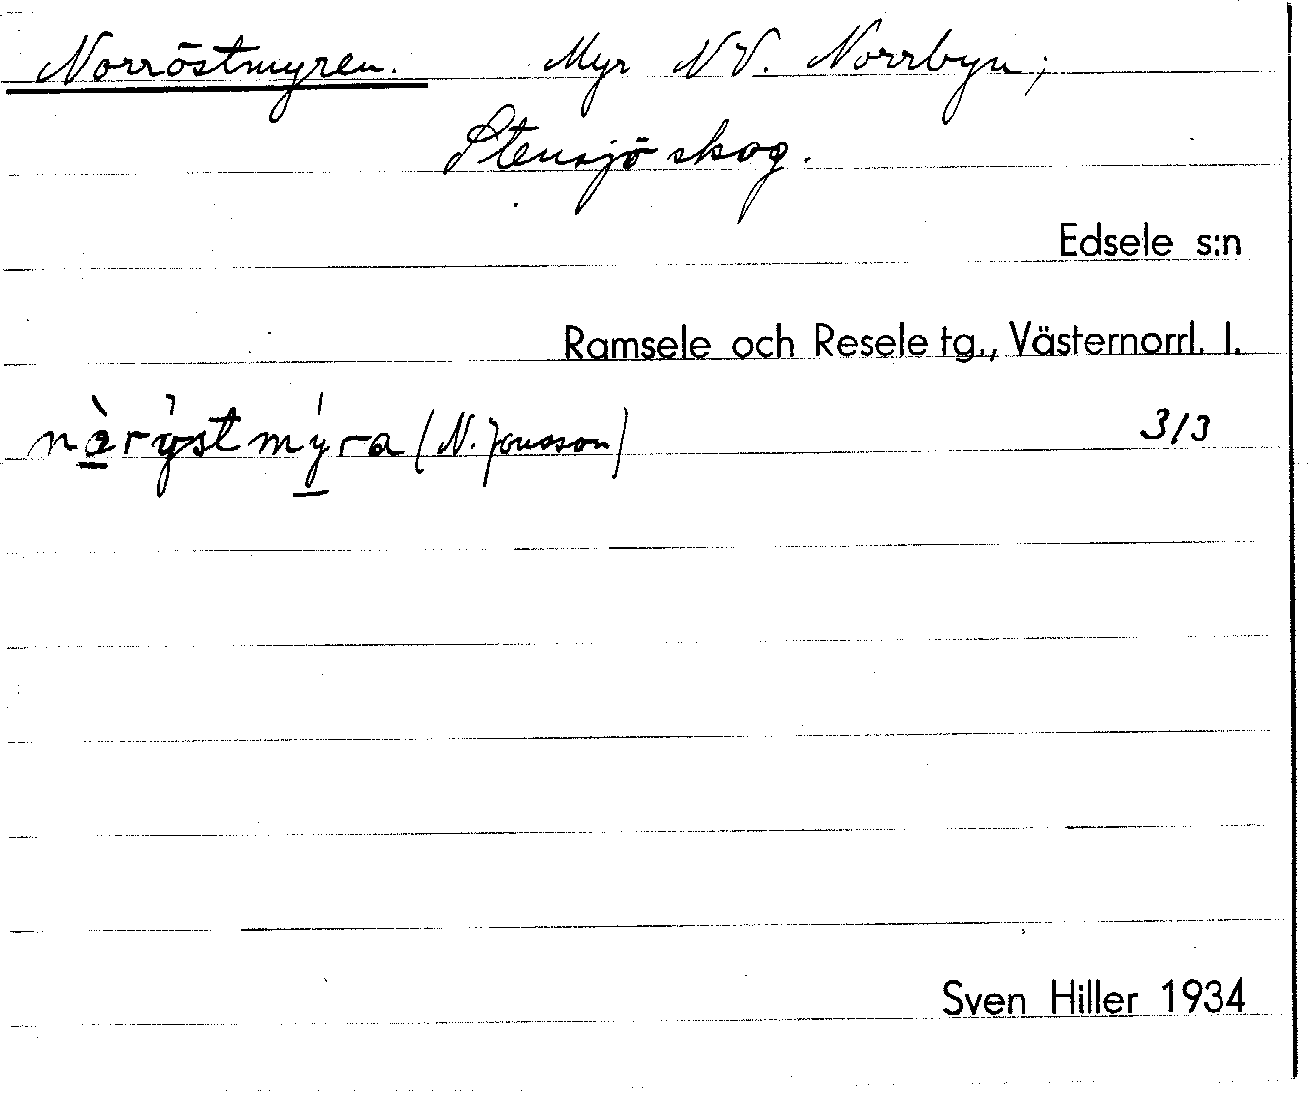 Norröstmyren. Myr NV. Norrbyn;
Stensjö skog.
Edsele s:n
Ramsele och Resele tg., Västernorrl. l.
nòrýstmýra (N. Jonsson) 3/3
Sven Hiller 1934